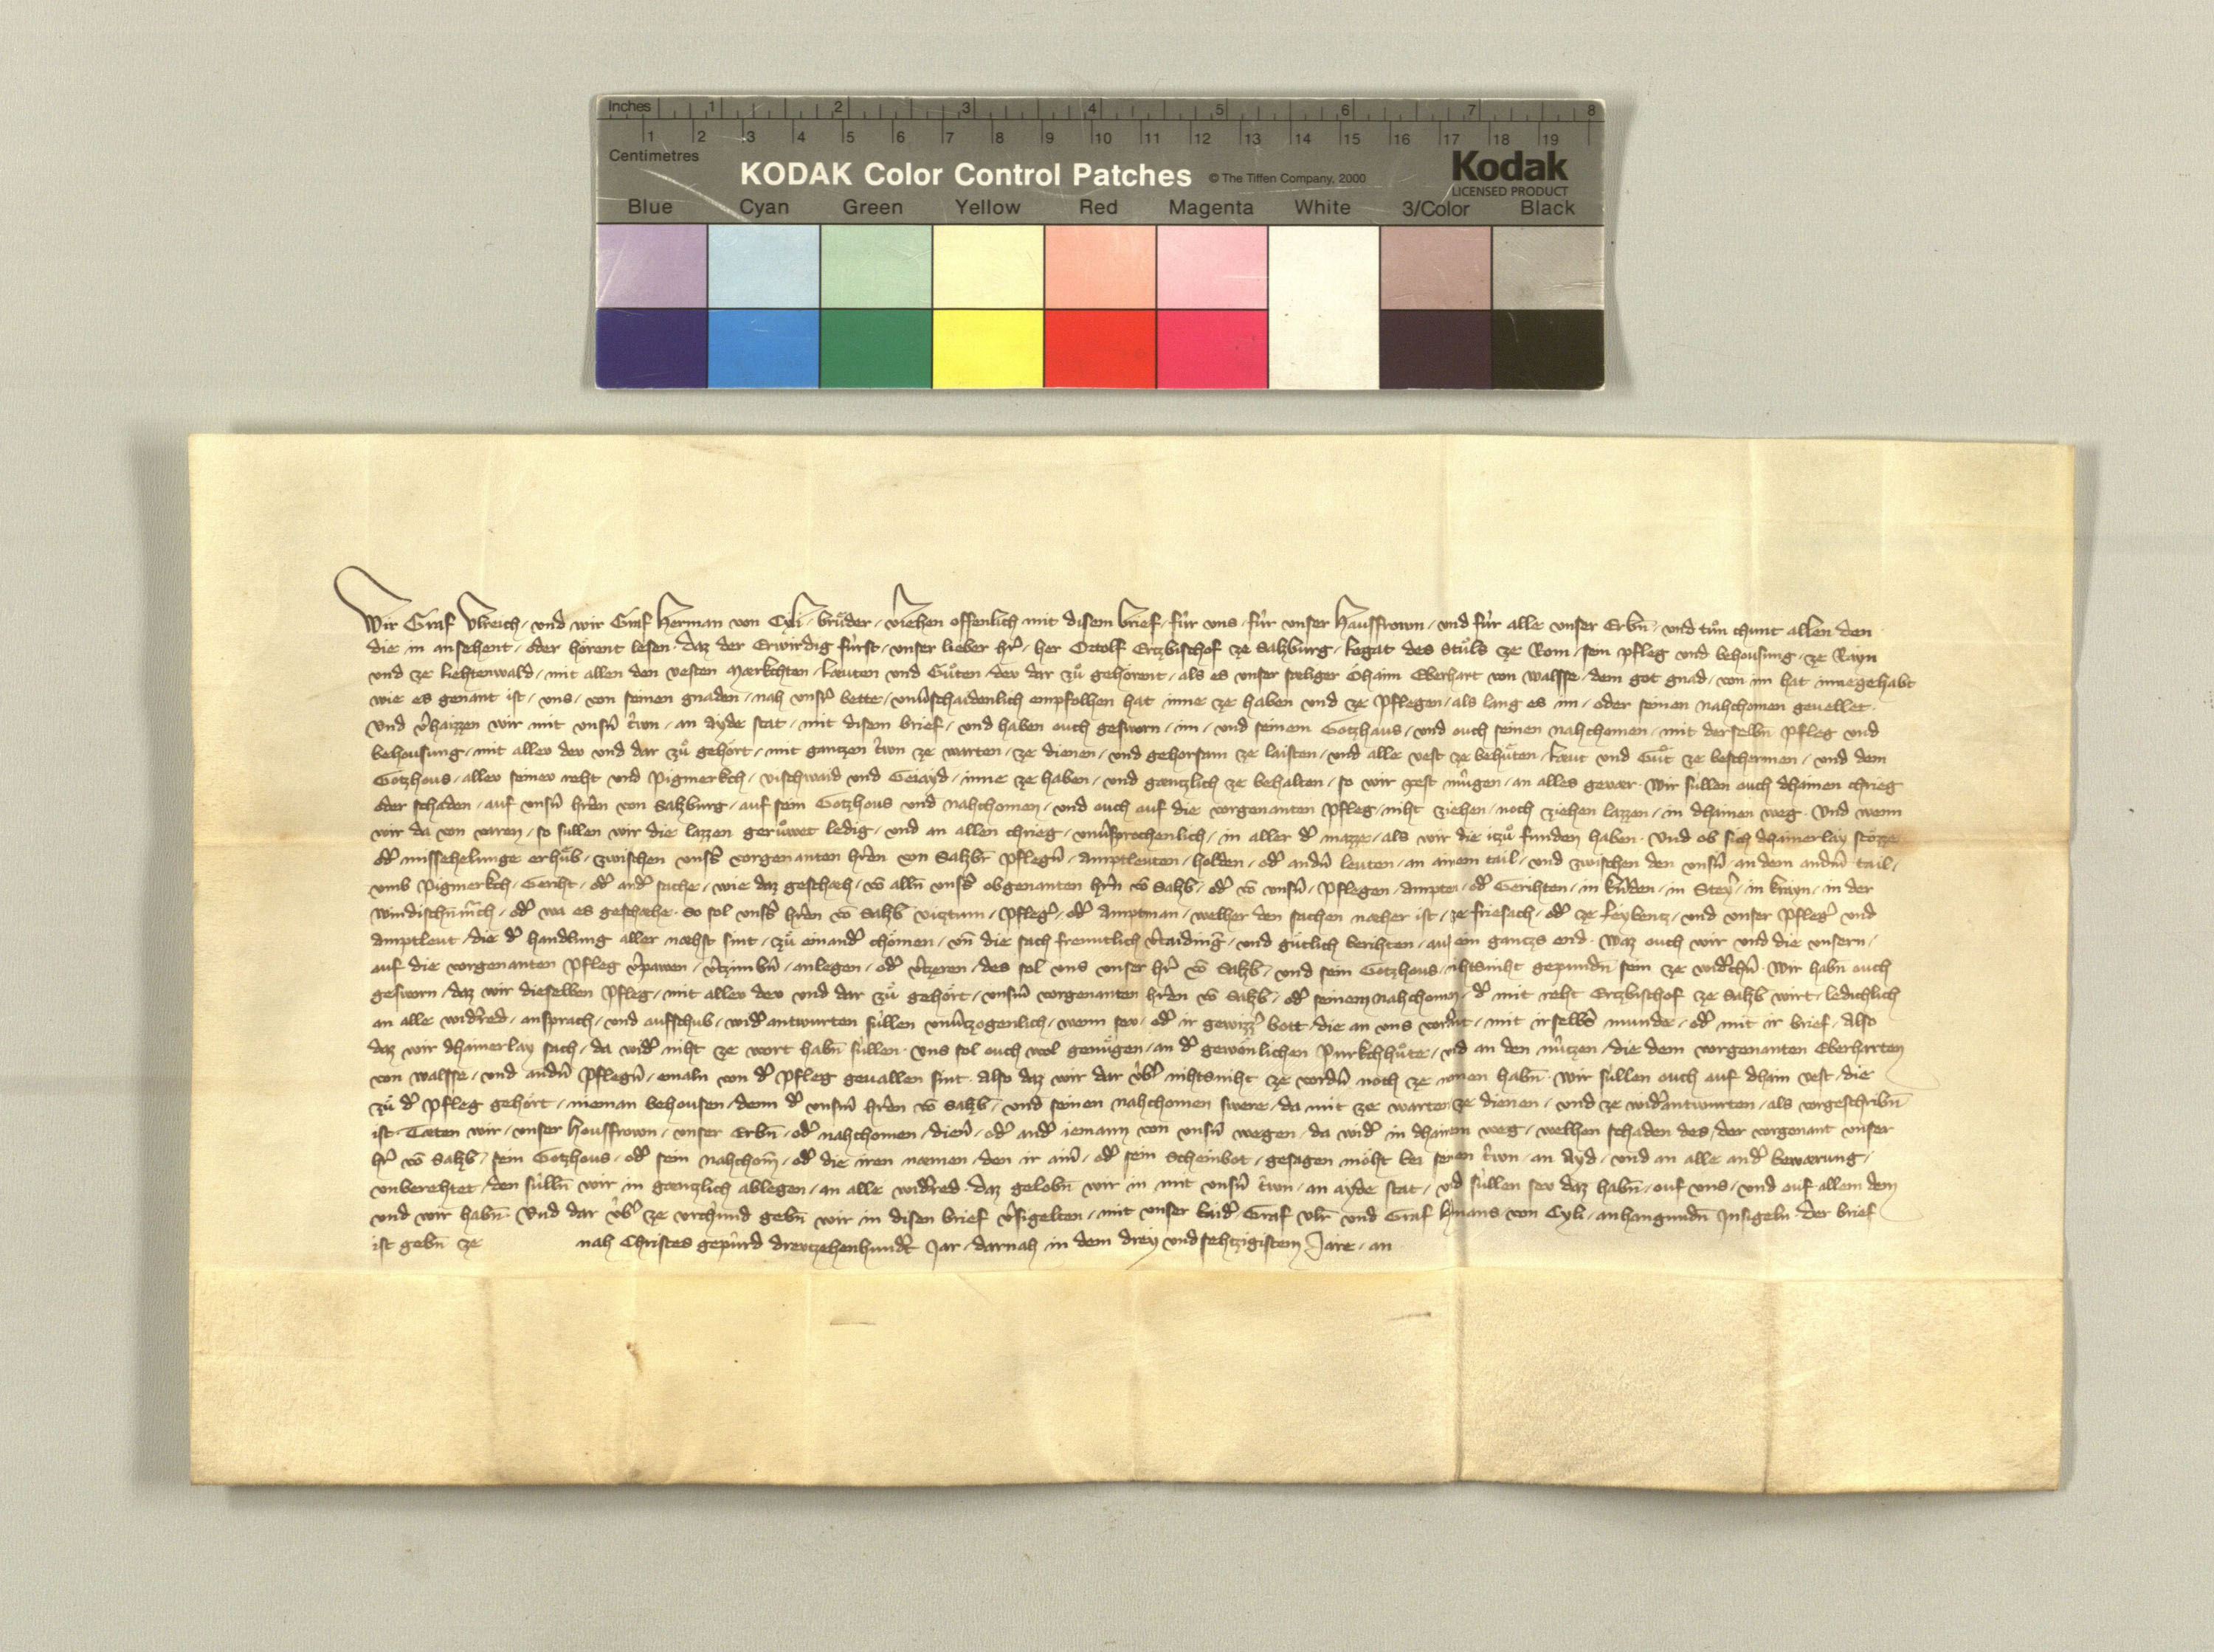 Inches 1 2 3 4 5 6 7 8
1 2 3 4 5 6 7 8 9 10 11 12 13 14 15 16 17 18 19
Centimetres
KODAK Color Control Patches © The Tiffen Company, 2000 Kodak
LICENSED PRODUCT
Blue Cyan Green Yellow Red Magenta White 3/Color Black
Wir Graf Vlreich, und wir Graf Herman von Cyli, bruͤder, viehen offenlich mit disem brief, fuͤr uns, fuͤr unser Hausfrown, und fuͤr alle unser Erbn̄, und tuͦn chunt allen den
die in ansehent, oder hoͤrent lesen, daz der Erwirdig fuͤrst, unser lieber hr̄, her Ortolf Ertzbischof ze Salzburg, Legat des Stuͦls ze Rom, sein pfleg und behousung, ze Rayn
und ze Liehtenwald, mit allen den vesten Maerkchten, Laeuten und Guͦten, dev dar zuͦ gehoͤrent, als es unser saeliger Oͤhaim Eberhart von Walsse, dem got gnad, von im hat innegehabt
wie es genant ist, uns, von seinen gnaden, nah unsr̄ bette, unuͤschaidenlich empfolhen hat inne ze haben und ze pflegen, als lang es im, oder seinen nahchomen geuellet.
Und v̄haizzen wir mit unsn̄ trwn, an Ayde stat, mit disem brief, und haben ouch gesworn, im, und seinem Gotzhaus, und ouch seinen nahchomen, mit derselbn̄ pfleg und
behousung, mit allev dev und dar zuͦ gehoͤrt, mit gantzen trwn ze warten, ze dienen, und gehorsam ze laisten, und alle vest ze behuͤten, Laeut und Guͦt ze beschermen, und dem
Gotzhous, allev seinev reht und Pigmerkch, vischwaid und Geiayd, inne ze haben, und gaentzlich ze behalten, so wir pest muͤgen, an alles gevaer. Wir suͤllen ouch dhainen chrieg
oder schaden, auf unsn̄ hr̄en von Salzburg, auf sein Gotzhous und nahchomen, und ouch auf die vorgenanten pfleg, niht ziehen, noch ziehen lazzen, in dhainen weg. Und wenn
wir da von varen, so sullen wir die lazzen geruͦwet ledig, und an allen chrieg, unuͤsprochenlich, in aller d̄ mazze, als wir die itzuͦ funden haben. Und ob sich dhainerlay stoͤzze
od̄ missehelunge erhuͤb, zwischen unss̄ vorgenanten hr̄en von Salzb̄r pflegn̄, Amptleuten, holden, od̄ andn̄ leuten, an ainem tail, und zwischen den unsn̄, an dem andn̄ tail,
umb Pigmerkch, Geriht, od̄ and̄ sache, wie daz geschaeh, vō alln̄ unss̄ obgenanten hr̄n vō Salzb̄, od̄ vō unsn̄, pflegen, Ampten, od̄ Gerihten, in Kn̄den, in Steyr̄, in Krayn, in der
Windischn̄m̄ch, od̄ wa es geschaehe. so sol unss̄ hr̄en vō Salzb̄ vitztum, pfleḡ, od̄ Amptman, welher den sachen naeher ist, ze friesach, od̄ ze Leybentz, und unser pfleḡ und
Amptleut, die d̄ handlung aller naehst sint, zuͦ einand̄ choͤmen, un̄ die sach freuntlich v̄taidinḡ, und guͤtlich berihten, auf ein gantzs end. Waz ouch wir und die unsern,
auf die vorgenanten pfleg v̄pawen, v̄tzimbn̄, anlegen, od̄ v̄tzeren, des sol uns unser hr̄ vō Salzb̄, und sein Gotzhous, nihtsniht gepundn̄ sein ze wid̄chn̄. Wir habn̄ ouch
gesworn, daz wir dieselben pfleg, mit allev dev und dar zuͦ gehoͤrt, unsm̄ vorgenanten hr̄en vō Salzb̄, od̄ seinem nahchomen, d̄ mit reht Ertzbischof ze Salzb̄ wirt, ledichlich
an alle wid̄red, ansprach, und aufschub, wid̄ antwurten suͤllen unuͤtzogenlich, wenn sev, od̄ ir gewizz̄ bott, die an uns vord̄nt, mit irselbs̄ munde, od̄ mit ir brief, Also
daz wir dhainerlay sach, da wid̄ niht ze wort habn̄ suͤllen. Uns sol ouch wol genuͤgen, an d̄ gewoͤnlichen Purkchhuͦte, und an den nuͤtzen, die dem vorgenanten Eberharten
von Walsse, und andn̄ pflegn̄, emaln von d̄ pfleg geuallen sint. Also daz wir dar uͤb̄ nihtsniht ze vordn̄ noch ze nemen habn̄. Wir suͤllen ouch auf dhain vest, die
zuͦ d̄ pfleg gehoͤrt, nieman behousen, denn d̄ unsm̄ hr̄en vō Salzb̄, und seinen nahchomen swere, da mit ze warten, ze dienen, und ze wid̄antwurten, als vorgeschribn̄
ist. Taeten wir, unser housfrown, unser Erbn̄, od̄ nahchomen, dien̄, od̄ and̄ iemann von unsn̄ wegen, da wid̄ in dhainem weg, welhen schaden des, der vorgenant unser
hr̄ vō Salzb̄, sein Gotzhous, od̄ sein nahchom̄, od̄ die iren naemen, den ir ain̄, od̄ sein Scheinbot, gesagen moͤht bei seinen trwn, an Ayd, und an alle and̄ bewaerung,
unberehtet, den suͤlln̄ wir in gaentzlich ablegen, an alle wid̄red. daz gelobn̄ wir in mit unsn̄ trwn, an ayde stat, und suͤllen sev daz habn̄, ouf uns, und ouf allem dem
und wir habn̄. Und dar uͤb̄ ze vrchund gebn̄ wir in disen brief v̄sigelten, mit unser baid̄, Graf Vlr̄ und Graf H̄mans von Cyli, anhangundn̄ Jnsigeln. Der brief
ist gebn̄ ze nah Christes gepuͤrd drevtzehenhund̄t Jar, darnah in dem drey und sehtzigistem Jare, an